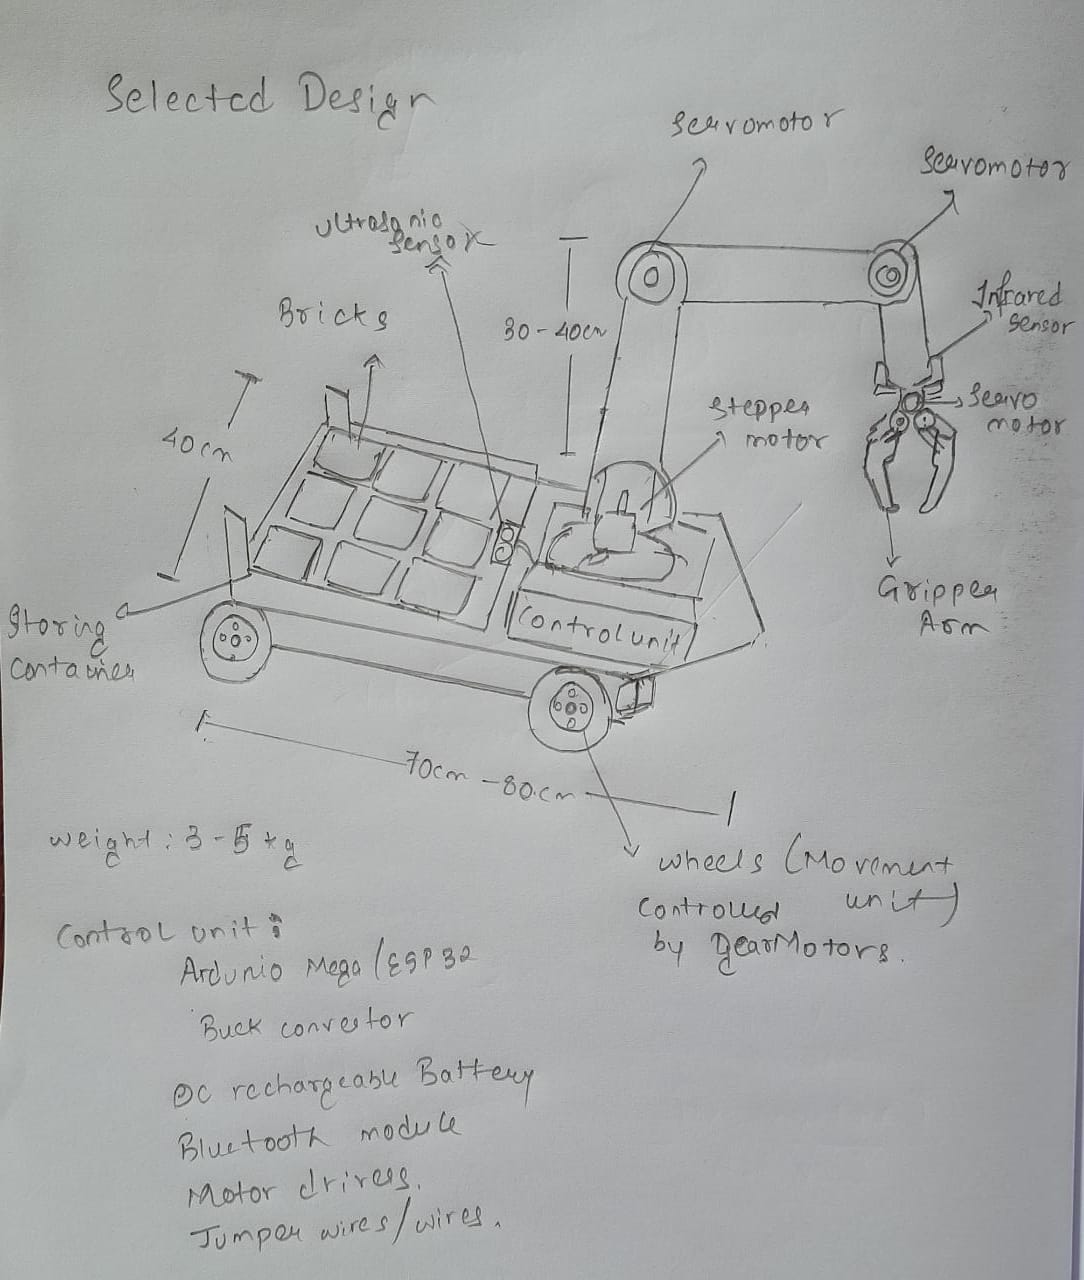 Selected Design
Servomotor
Servomotor
ultrasonic
sensor
Bricks
Infrared
sensor
30-40cm
Servo
motor
stepper
motor
40cm
Gripper
Arm
Storing
container
Control unit
70cm - 80cm
weight: 3-5 kg
wheels (Movement
unit)
controlled
by gearMotors.
Control unit:
Ardunio Mega/ESP32
Buck convertor
DC rechargeable Battery
Bluetooth module
Motor drivers.
Jumper wires/wires.